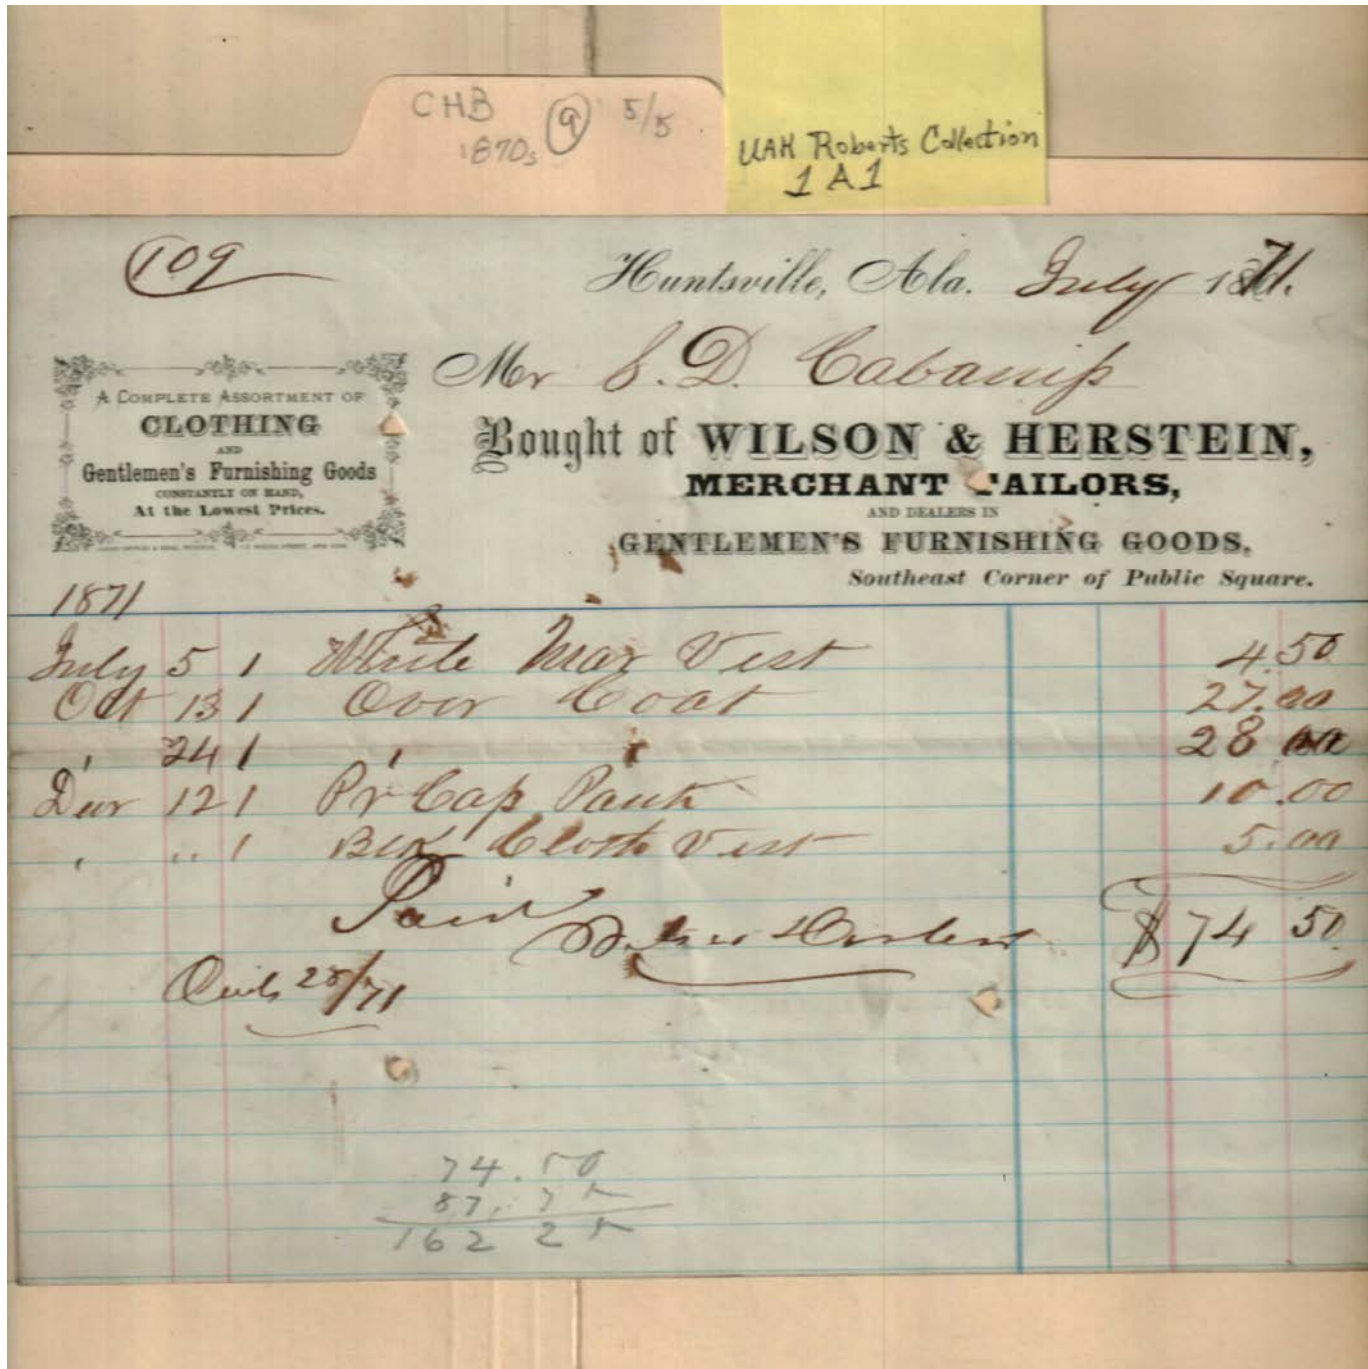 CHB 9 5/5
1870s
UAH Roberts Collection
1A1
109
Huntsville, Ala. July 1871.
Mr S. D. Cabaniss
A COMPLETE ASSORTMENT OF
CLOTHING
AND
Gentlemen's Furnishing Goods
CONSTANTLY ON HAND,
At the Lowest Prices.
Bought of WILSON & HERSTEIN,
MERCHANT TAILORS,
AND DEALERS IN
GENTLEMEN'S FURNISHING GOODS,
Southeast Corner of Public Square.
1871
July 5 1 White Mar Vest 4.50
Oct 13 1 Over Coat 27.00
" 24 1 " " 28 00
12 1 Pr Cas Pants 10.00
" " 1 Blk Cloth Vest 5.00
Paid
Wilson & Herstein $74 50
28/71
74.50
87.75
162 25